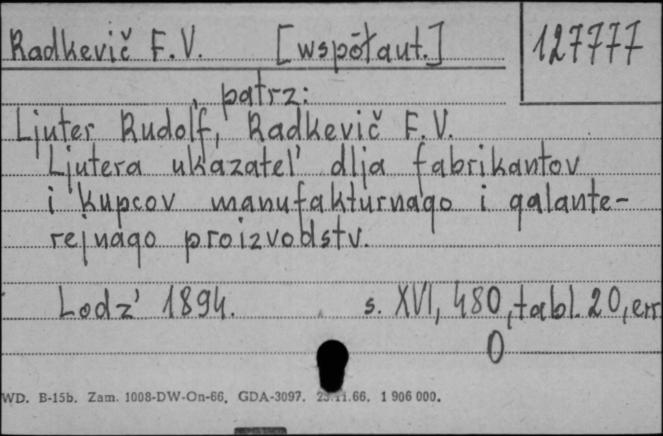 Radkevič F.V. [współaut.] 127777
patrz:
Ljuter Rudolf, Radkevič F.V.
Ljutera ukazatel' dlja fabrikantov
i kupcov manufakturnago i galante-
rejnago proizvodstv.
Lodz' 1894. s. XVI, 480, tabl. 20, err
0
WD. B-15b. Zam. 1008-DW-On-66. GDA-3097. 23.11.66. 1 906 000.